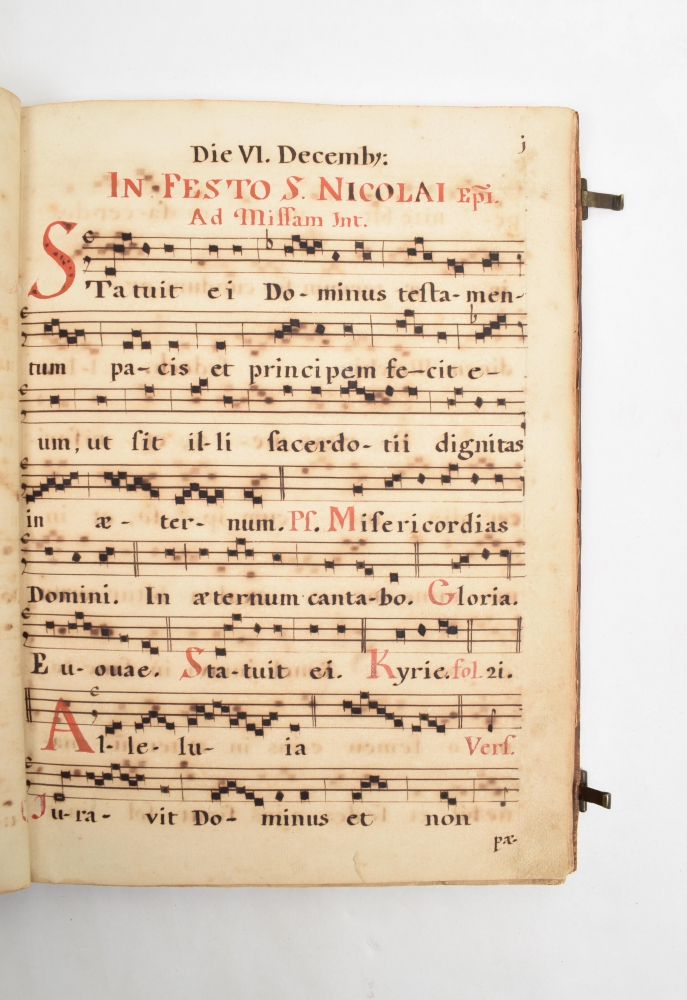 j
Die VI. Decembr:
IN FESTO S. NICOLAI Ep̃i.
Ad Missam Int.
STatuit ei Do- minus testa- men-
tum pa- cis et principem fe- cit e-
um, ut sit il- li sacerdo- tii dignitas
in æ- ter- num. Ps. Misericordias
Domini. In æternum canta- bo. Gloria.
E u- ouae. Sta- tuit ei. Kyrie. fol. 21.
Al- le- lu- ia Vers.
Ju- ra- vit Do- minus et non
pæ-